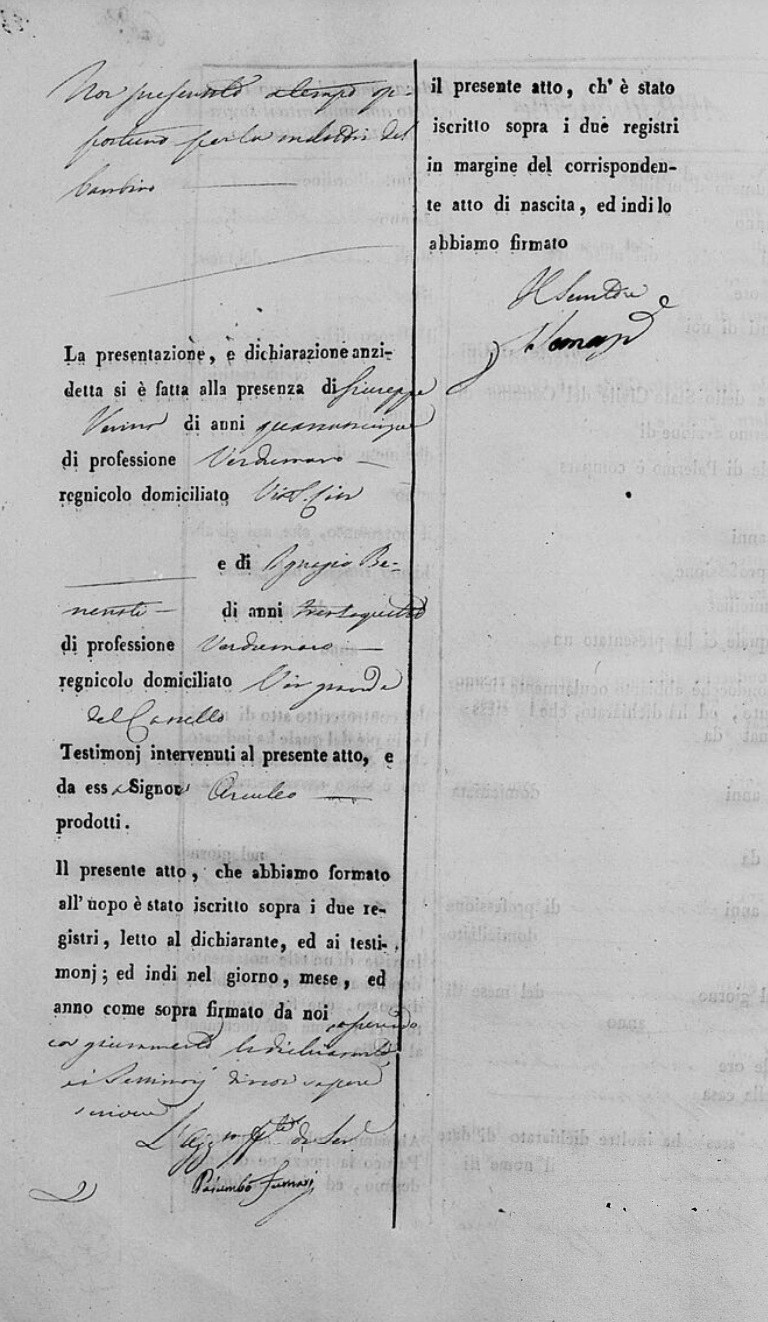 Non presentato a tempo op-
portuno per la malattia del
bambino
La presentazione, e dichiarazione anzi-
detta si è fatta alla presenza di Giuseppe
di anni quarantacinque
di professione Verdumaro
regnicolo domiciliato
e di Ignazio Be-
nenati di anni trentaquattro
di professione Verdumaro
regnicolo domiciliato Via grande
del
Testimonj intervenuti al presente atto, e
da ess Signor Arculeo
prodotti.
Il presente atto, che abbiamo formato
all'uopo è stato iscritto sopra i due re-
gistri, letto al dichiarante, ed ai testi-
monj; ed indi nel giorno, mese, ed
anno come sopra firmato da noi
con giuramento il dichiarante
ei Testimonj di non sapere
scrivere
Palumbo
il presente atto, ch' è stato
iscritto sopra i due registri
in margine del corrisponden-
te atto di nascita, ed indi lo
abbiamo firmato
Il Senatore